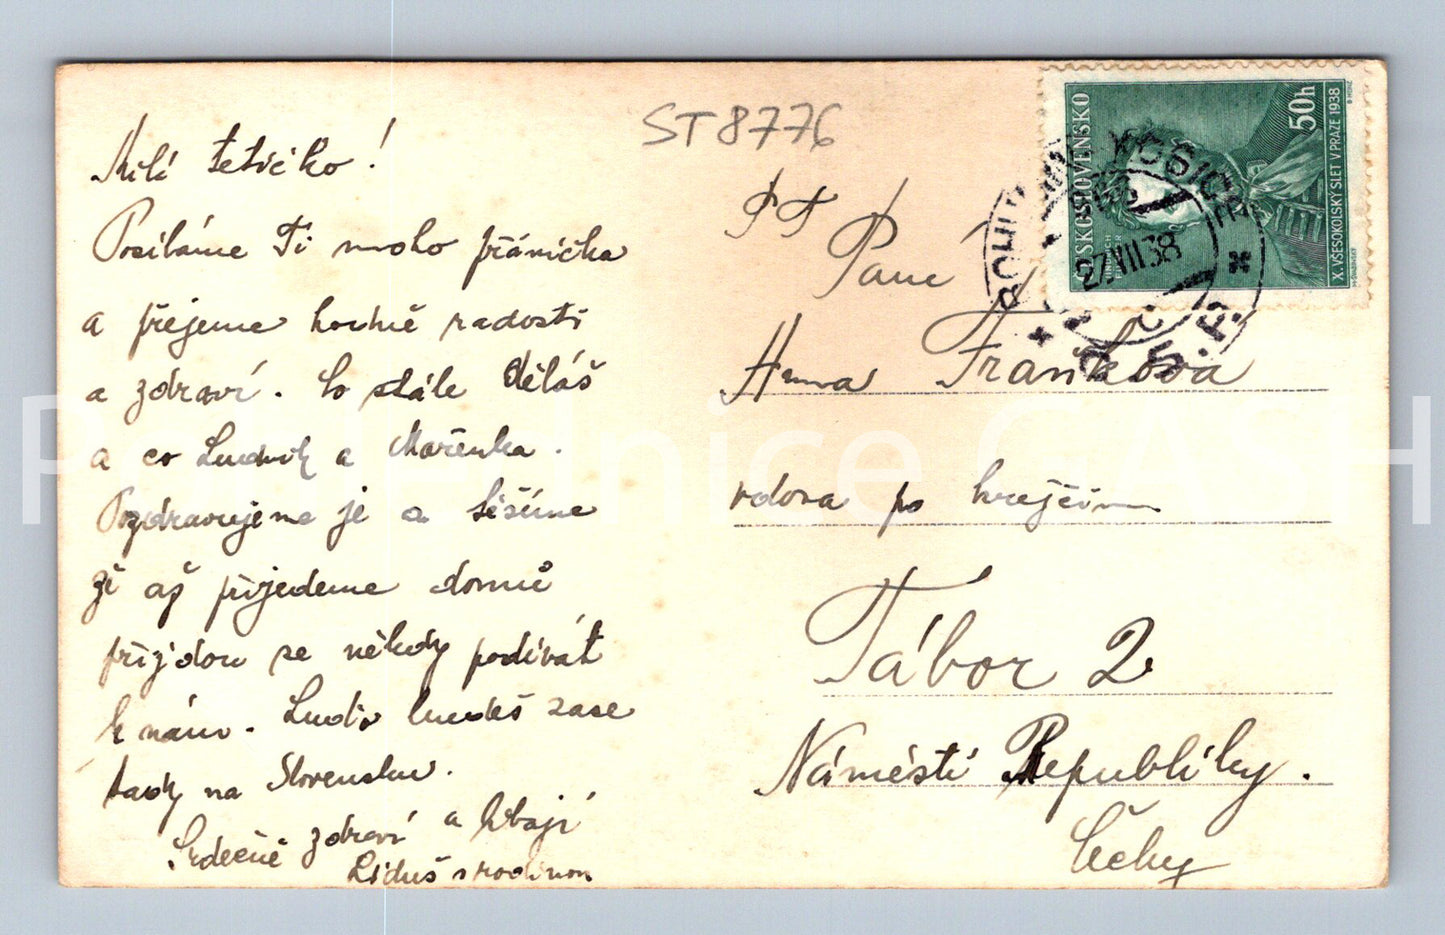 ST8776
Milá tetičko!
Posíláme Ti mnoho přáníčka
a přejeme hodně radosti
a zdraví. Co stále děláš
a co Ludvík a Mařenka.
Pozdravujeme je a těšíme
že až přijedeme domů
přijdou se někdy podívát
k nám. budeš zase
tady na Slovensku.
Srdečně zdraví a líbají
Liduš s rodinou
Paní
Anna Fraňková
vdova po krejčím
Tábor 2
Náměstí Republiky.
Čechy
ČESKOSLOVENSKO
50h
X. VŠESOKOLSKÝ SLET V PRAZE 1938
JINDŘICH
FÜGNER
KOŠICE
27.VII.38
Pohlednice GASH